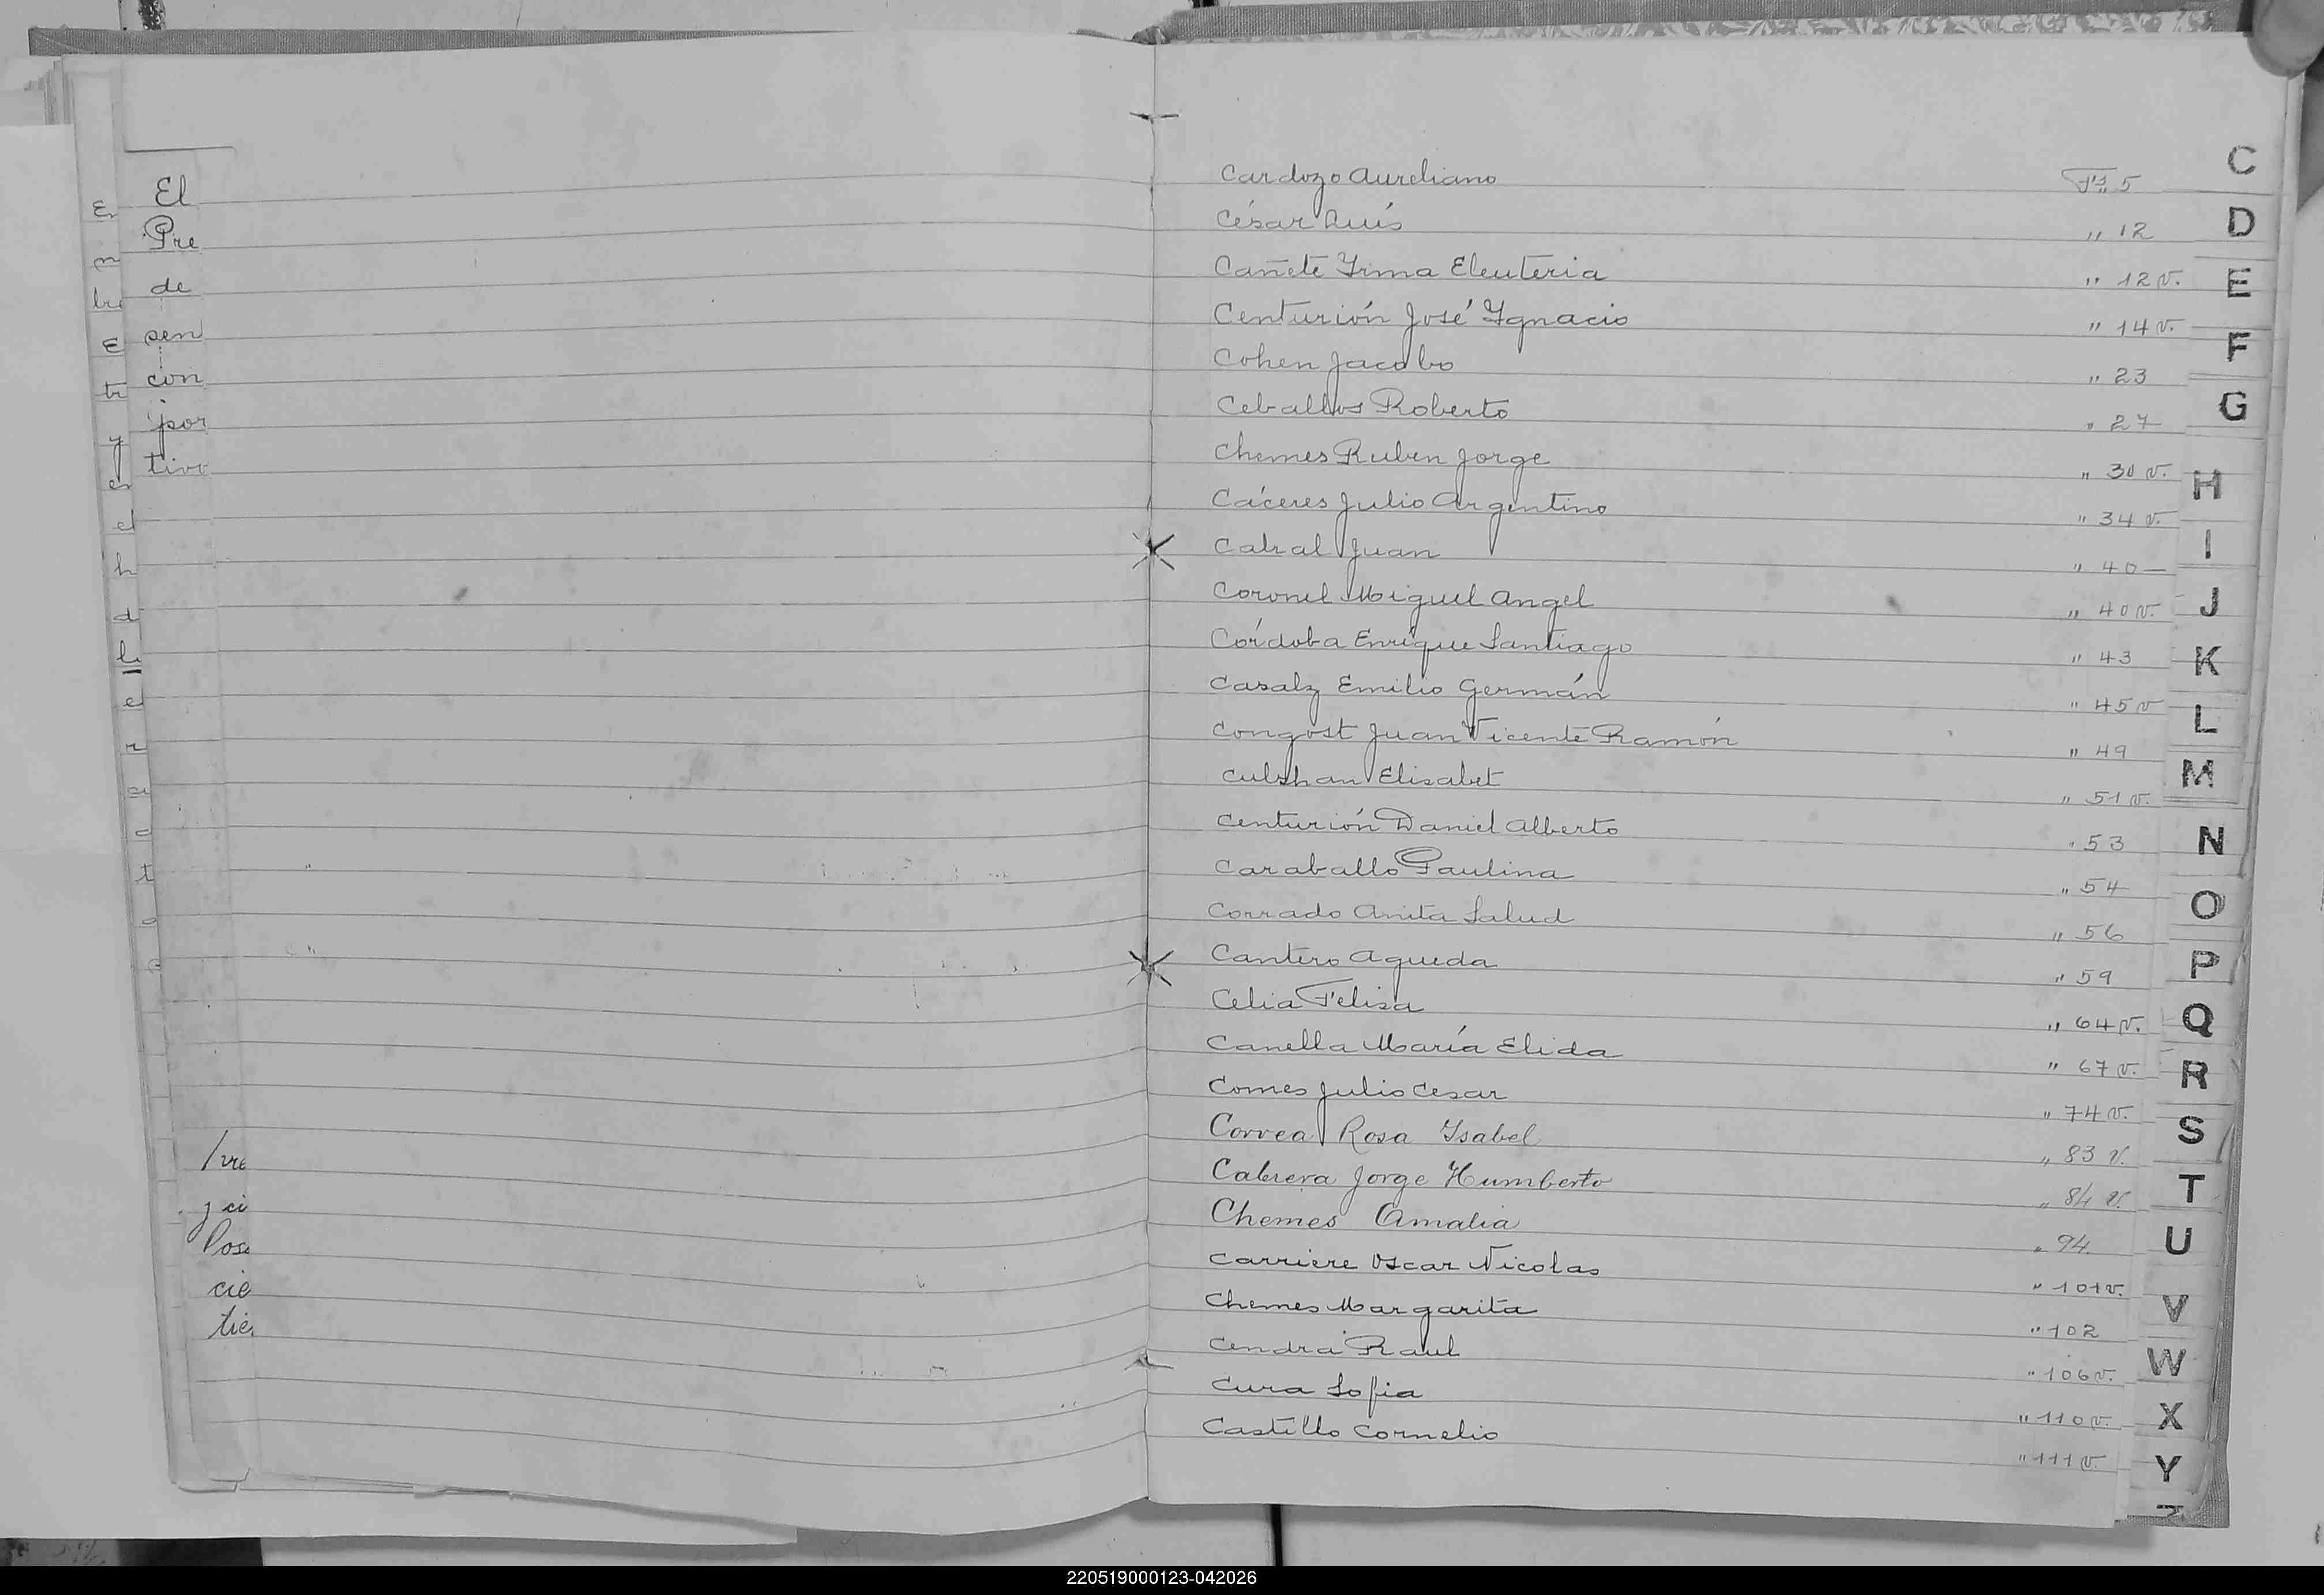 El
Pre
de
sen
con
por
tivo
/vre
y ci
Pose
cie
tie
Cardozo Aureliano Fs. 5
César Luis " 12
Cañete Yrma Eleuteria " 12 v.
Centurión José Ygnacio " 14 v.
Cohen Jacobo " 23
Ceballos Roberto " 27
Chemes Ruben Jorge " 30 v.
Cáceres Julio Argentino " 34 v.
Cabral Juan " 40
Coronel Miguel Angel " 40 v.
Córdoba Enrique Santiago " 43
Casalz Emilio Germán " 45 v
Congost Juan Vicente Ramón " 49
Culshan Elisabet " 51 v.
Centurión Daniel Alberto " 53
Caraballo Paulina " 54
Corrado Anita Salud " 56
Cantero Agueda " 59
Celia Felisa " 64 v.
Canella María Elida " 67 v.
Comes Julio Cesar " 74 v.
Correa Rosa Ysabel " 83 v.
Cabrera Jorge Humberto " 84 v.
Chemes Amalia " 94
Carriere Oscar Nicolas " 101 v.
Chemes Margarita " 102
Cendra Raul " 106 v.
Cura Sofia " 110 v.
Castillo Cornelio " 111 v.
C
D
E
F
G
H
I
J
K
L
M
N
O
P
Q
R
S
T
U
V
W
X
Y
Z
220519000123-042026